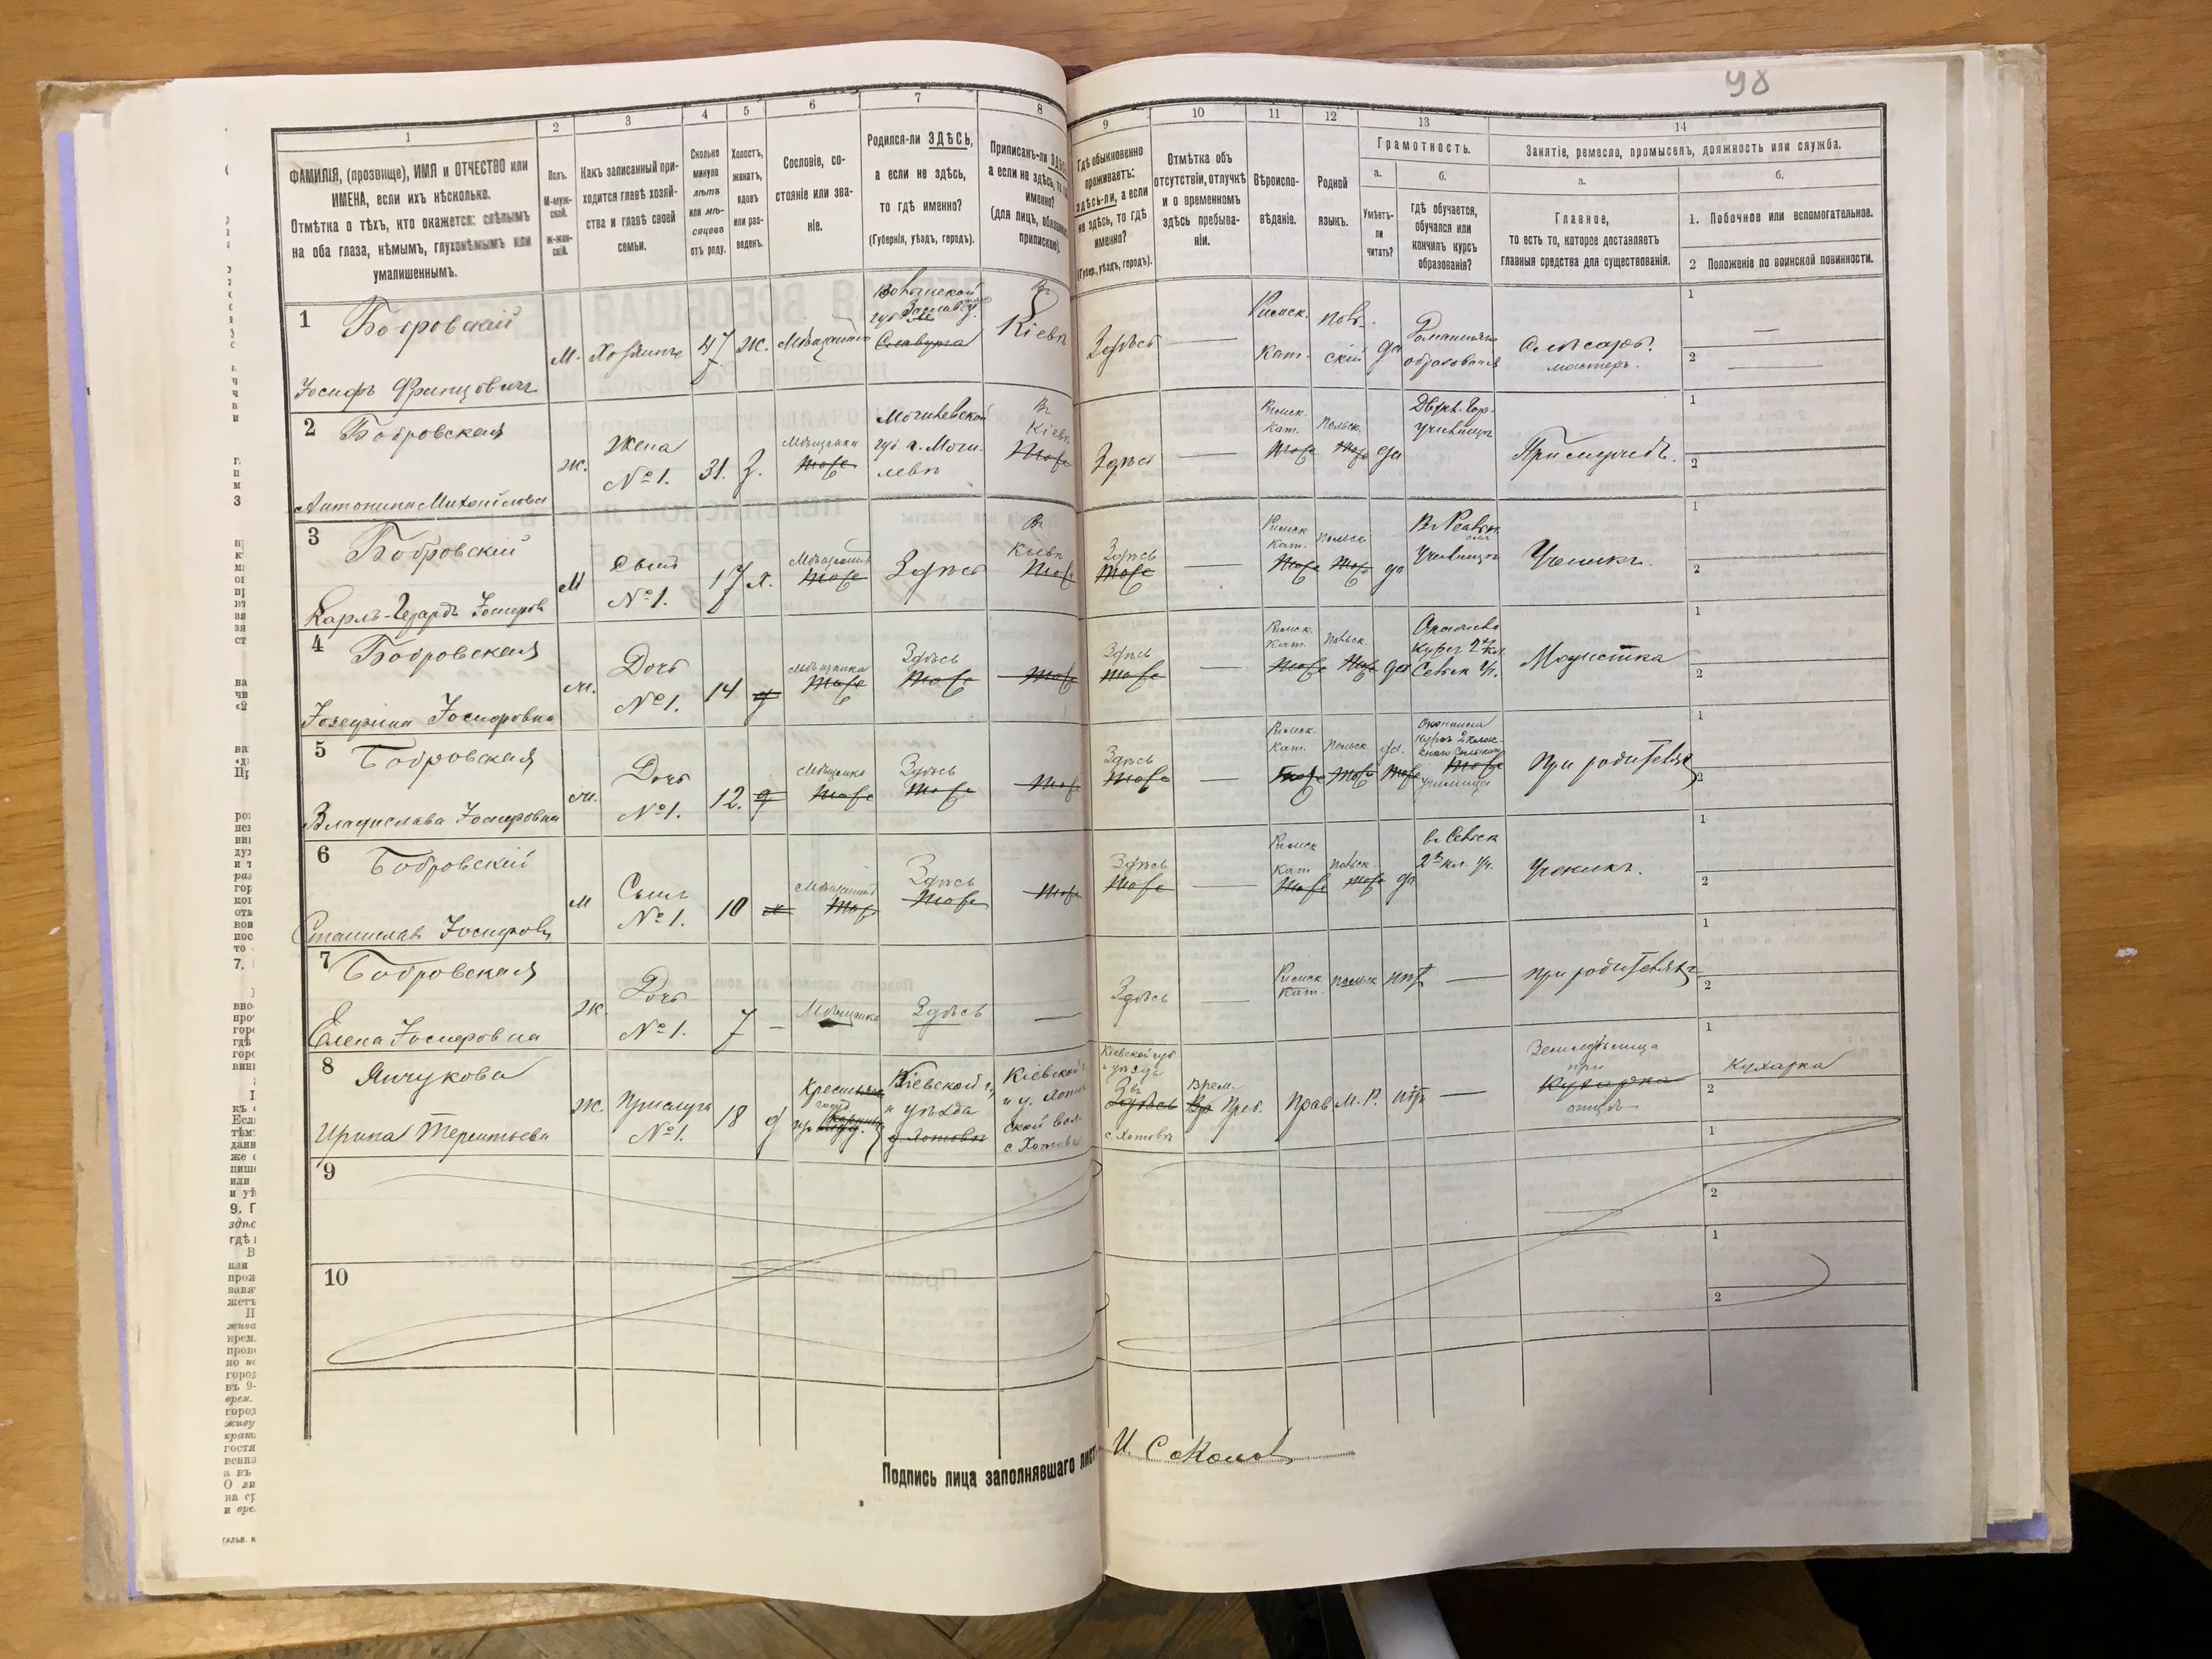 98
1
2
3
4
5
6
7
8
9
10
11
12
13
14
ФАМИЛІЯ, (прозвище), ИМЯ и ОТЧЕСТВО или
ИМЕНА, если ихъ нѣсколько.
Отмѣтка о тѣхъ, кто окажется: слѣпымъ
на оба глаза, нѣмымъ, глухонѣмымъ или
умалишеннымъ.
Полъ.
М-муж-
ской.
Ж-жен-
скій.
Какъ записанный при-
ходится главѣ хозяй-
ства и главѣ своей
семьи.
Сколько
минуло
лѣтъ
или мѣ-
сяцевъ
отъ роду.
Холостъ,
женатъ,
вдовъ
или раз-
веденъ.
Сословіе, со-
стояніе или зва-
ніе.
Родился-ли ЗДѢСЬ,
а если не здѣсь,
то гдѣ именно?
(Губернія, уѣздъ, городъ).
Приписанъ-ли
а если не здѣсь,
именно?
(для лицъ,
припискою).
Гдѣ обыкновенно
проживаетъ:
здѣсь-ли, а если
не здѣсь, то гдѣ
именно?
(Губер., уѣздъ, городъ).
Отмѣтка объ
отсутствіи, отлучкѣ
и о временномъ
здѣсь пребыва-
ніи.
Вѣроиспо-
вѣданіе.
Родной
языкъ.
Грамотность.
а.
Умѣетъ-
ли
читать?
б.
гдѣ обучается,
обучался или
кончилъ курсъ
образованія?
Занятіе, ремесло, промыселъ, должность или служба.
а.
Главное,
то есть то, которое доставляетъ
главныя средства для существованія.
б.
1. Побочное или вспомогательное.
2 Положеніе по воинской повинности.
1 Бобровскій
Іосифъ Францовичъ
М. Хозяинъ 47 ж. Мѣщанинъ
Волынской
губ. Заслав. у.
Славута
Въ
Кіевѣ
Здѣсь —
Римск.
Кат.
Поль-
скій
да
Домашняго
образованія
Слесарь.
мастеръ.
1 —
2 —
2 Бобровская
Антонина Михайловна
ж.
Жена
№ 1.
31. З.
Мѣщанка
тоже
Могилевской
губ. г. Моги-
левѣ
Въ
Кіевѣ
тоже
Здѣсь —
Римск.
Кат.
тоже
Польск.
тоже
да
Двухкл. Гор.
училищѣ
1
2
3 Бобровскій
Карлъ-Герардъ Іосифов
М
Сынъ
№ 1.
17 х.
Мѣщанинъ
тоже
Здѣсь
Въ
Кіевѣ
тоже
Здѣсь
тоже
—
Римск
Кат.
тоже
Польск
тоже
да
Въ Реальн
Училищѣ
Ученикъ.
1
2
4 Бобровская
Іозефина Іосифовна
м.
Дочь
№ 1.
14
д
Мѣщанка
тоже
Здѣсь
тоже
тоже
Здѣсь
тоже
—
Римск.
Кат.
тоже
Польск
тоже
да
Окончила
Курсъ 2х кл.
Сельск Уч.
Модистка
1
2
5 Бобровская
Владислава Іосифовна
м.
Дочь
№ 1.
12.
д
Мѣщанка
тоже
Здѣсь
тоже
тоже
Здѣсь
тоже
—
Римск.
Кат.
тоже
Польск.
тоже
да.
тоже
Окончила
курсъ 2 клас-
тоже
училища
При родителяхъ
1
2
6 Бобровскій
Станиславъ Іосифовъ
М
Сынъ
№ 1.
10
х
Мѣщанинъ
тоже
Здѣсь
тоже
тоже
Здѣсь
тоже
—
Римск
Кат
тоже
Польск.
тоже
да
въ Сельск
2х кл. Уч.
Ученикъ.
1
2
7 Бобровская
Елена Іосифовна
ж.
Дочь
№ 1.
7 —
Мѣщанка
Здѣсь
—
Здѣсь —
Римск
Кат.
польск
нѣтъ
—
при родителяхъ
1
2
8 Янчукова
Ирина Терентьева
ж.
Прислуга
№ 1.
18 д
Кіевской г.
и уѣзда
с. Хотовъ
Кіевской г.
и у. Хотов
ской вол.
с. Хотовъ
Кіевской губ.
и уѣзда
Здѣсь
с. Хотовъ
Врем.
Преб.
Прав М. Р. нѣтъ —
Земледѣлица
при
Кухарка
отцѣ
1 Кухарка
2
9
1
2
10
1
2
Подпись лица заполнявшаго лист
И. Соколов